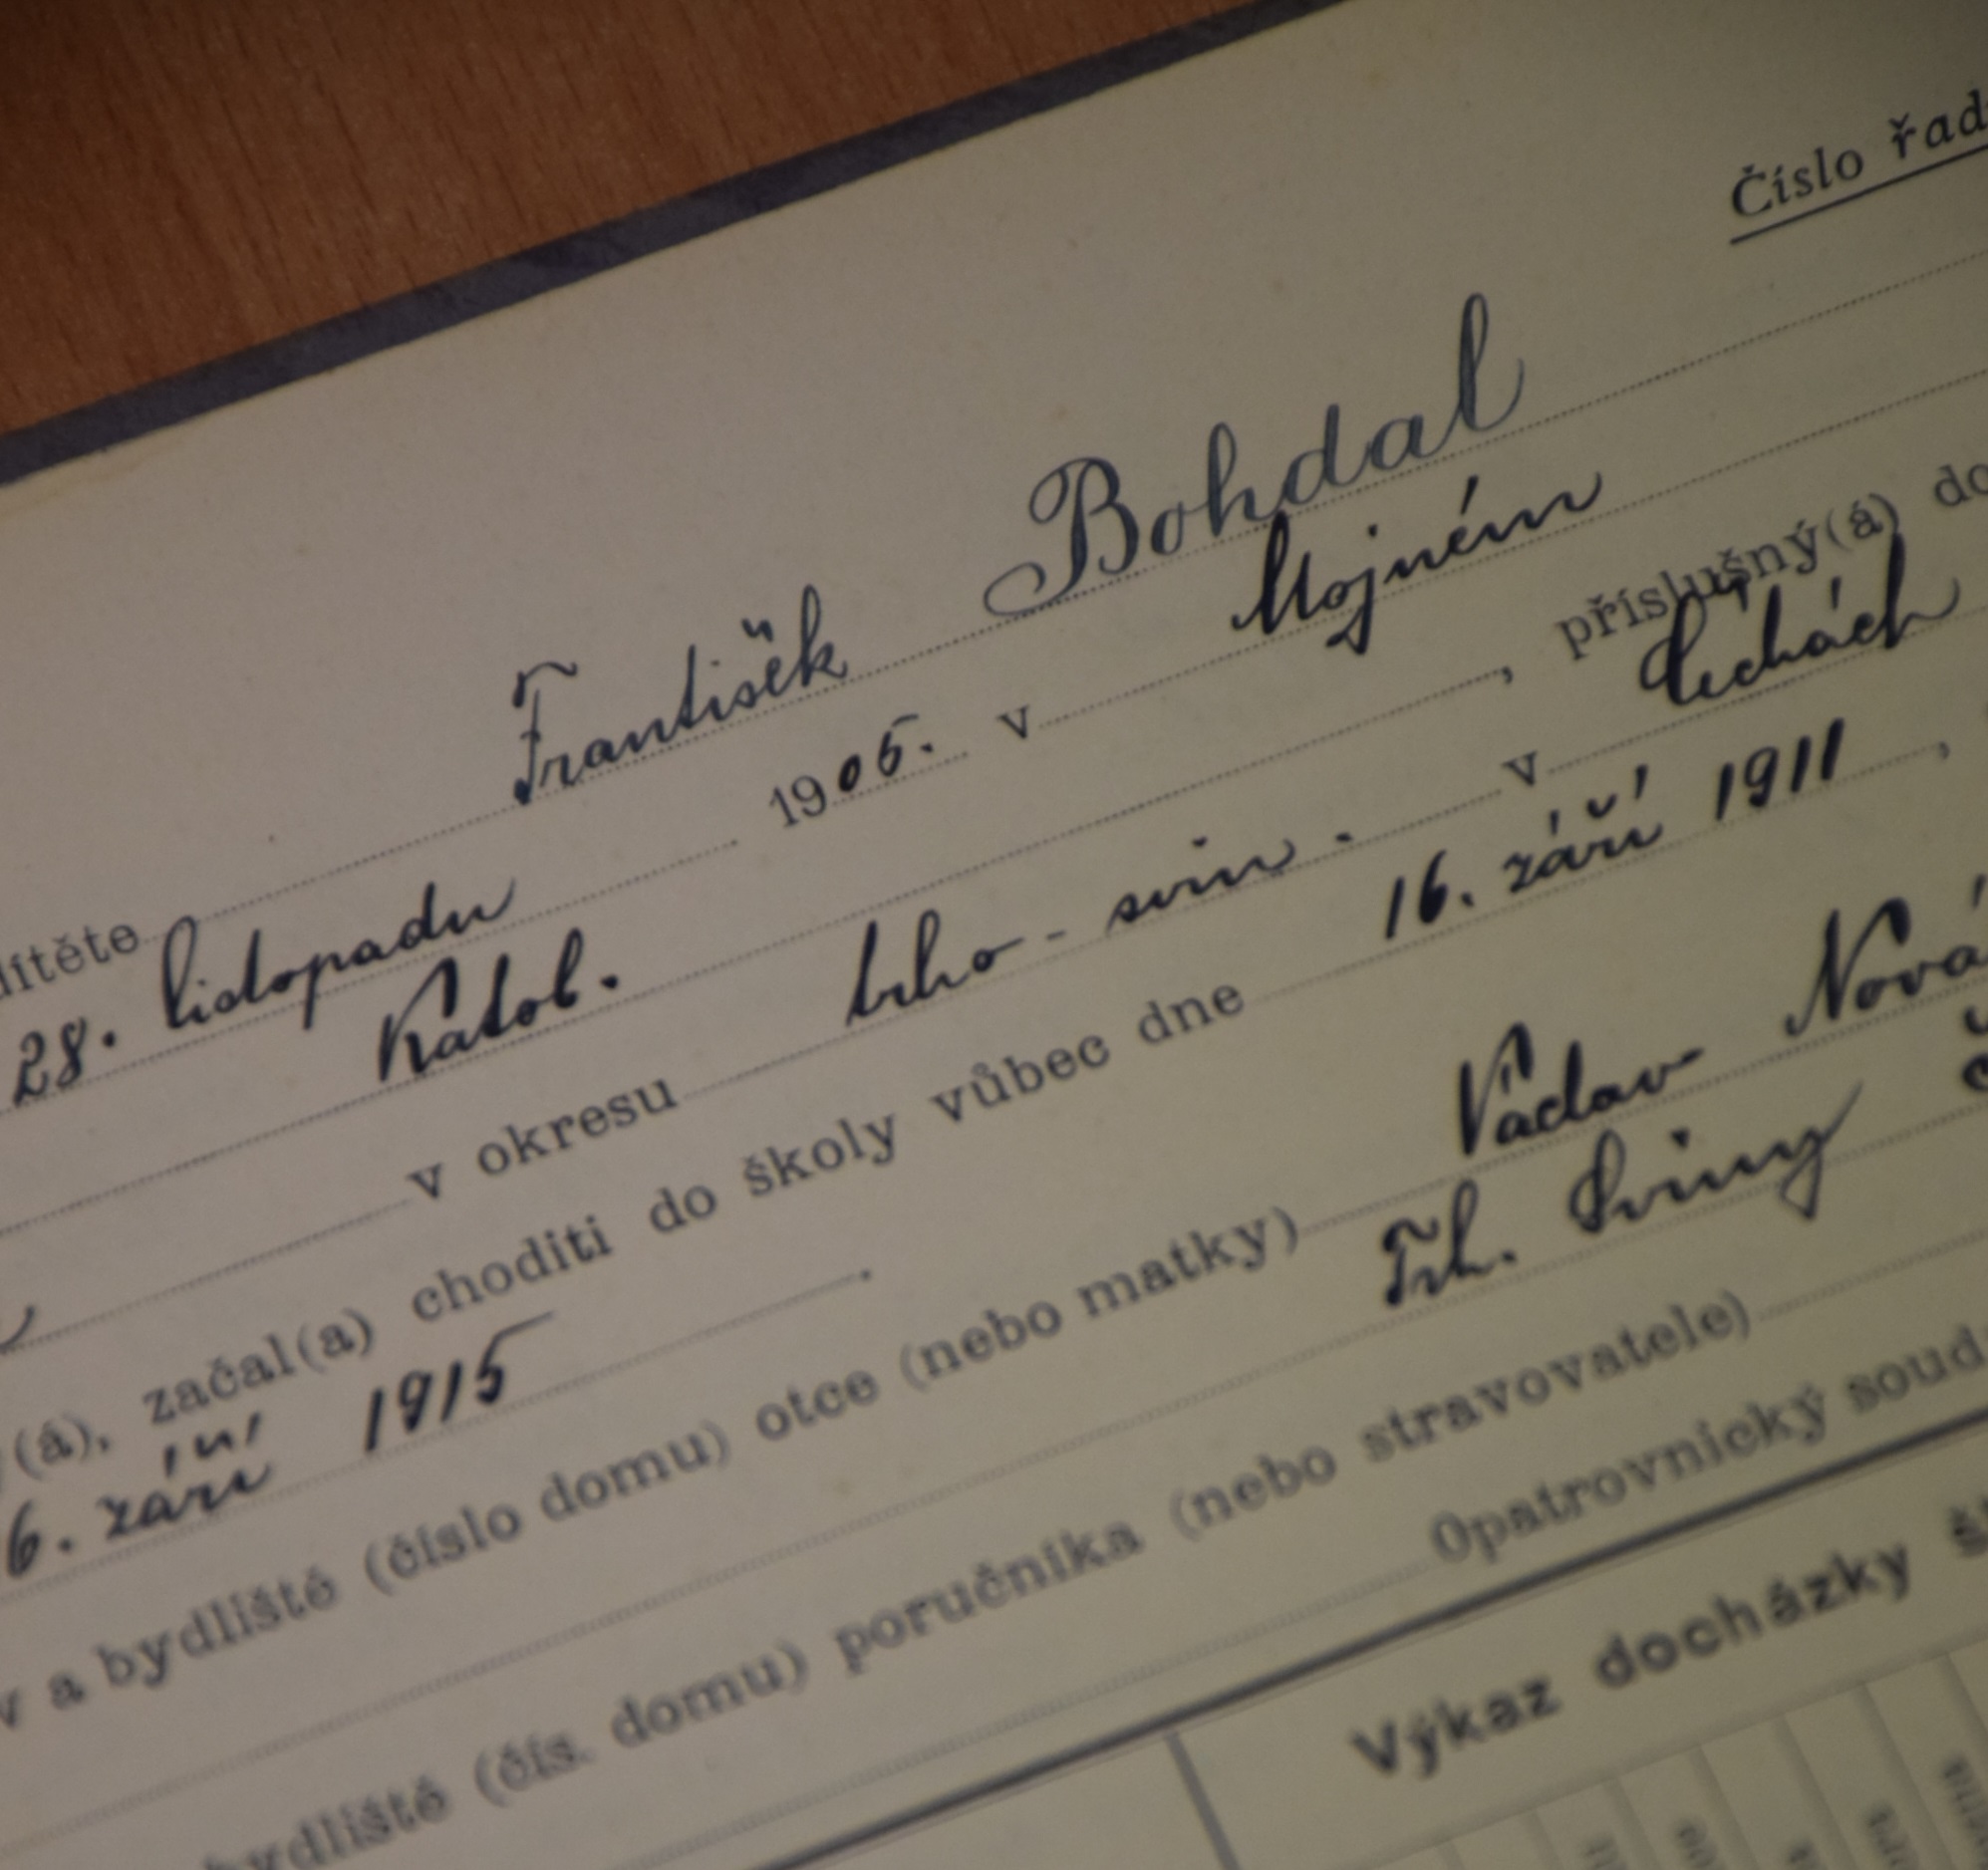 Číslo řad
dítěte František Bohdal
28. listopadu 1905. v Mojném
Katol. , příslušný(á) do
v okresu trho-svin. v Čechách
(á), začal(a) choditi do školy vůbec dne 16. září 1911 ,
6. září 1915 .
v a bydliště (číslo domu) otce (nebo matky) Václav Nová
Trh. Sviny
bydliště (čís. domu) poručníka (nebo stravovatele)
Opatrovnický soud
Výkaz docházky